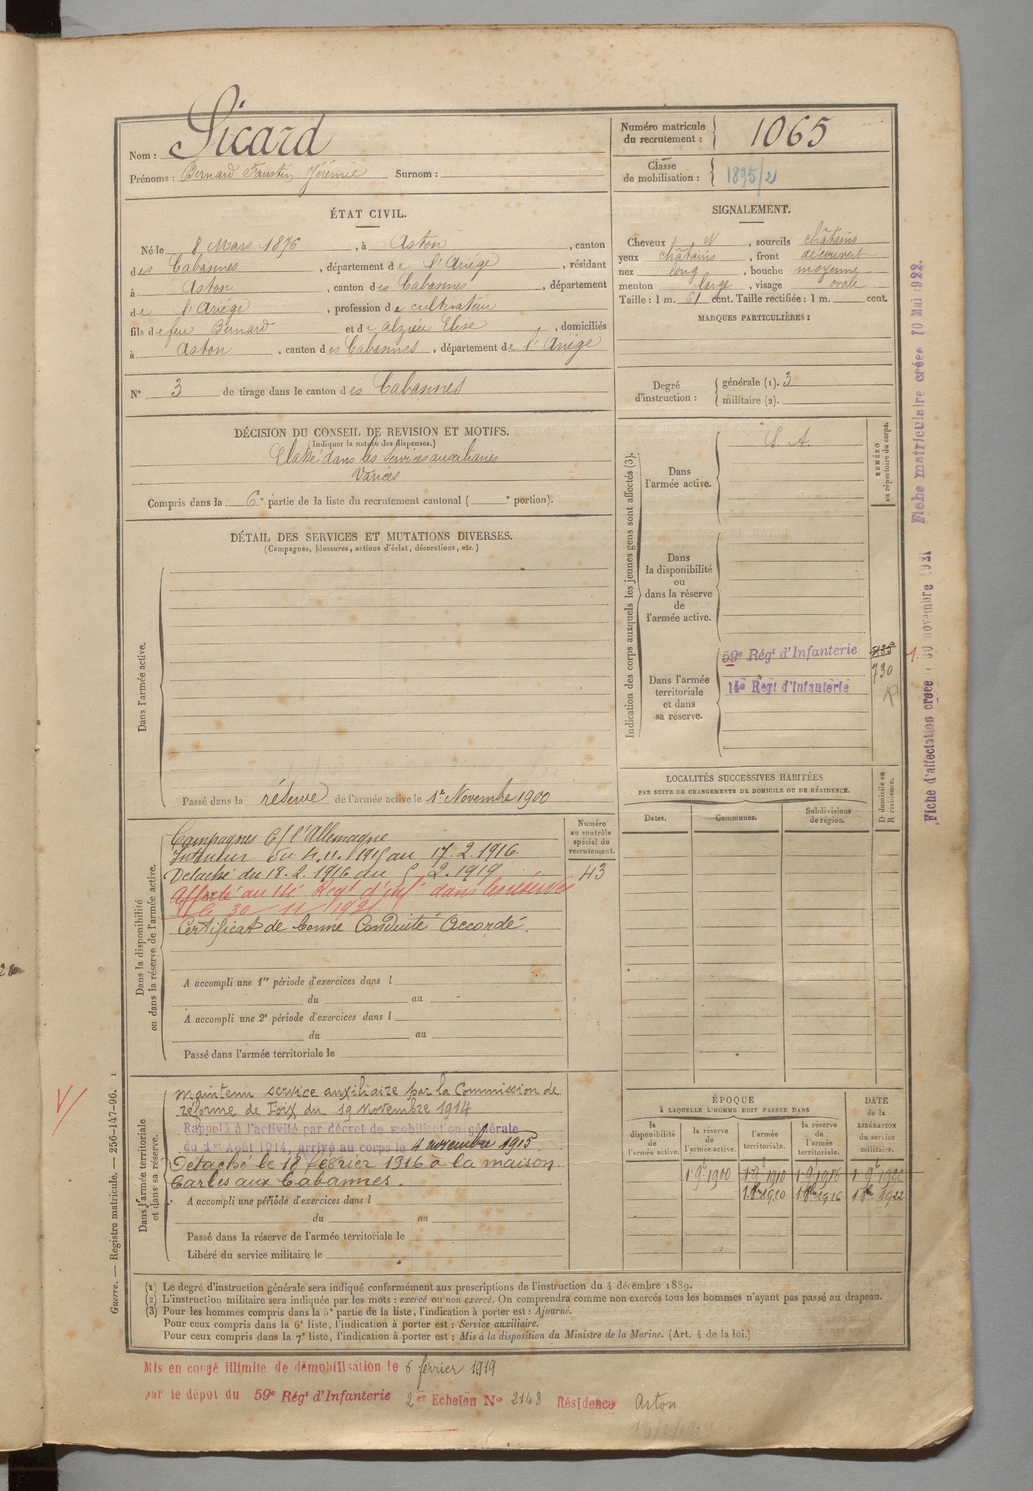 Nom : Sicard
Prénoms : Bernard Faustin Jérémie Surnom :
Numéro matricule du recrutement : 1065
Classe de mobilisation : 1895/2
ÉTAT CIVIL.
Né le 8 Mars 1876, à Aston, canton
des Cabannes, département de l'Ariège, résidant
à Aston, canton des Cabannes, département
de l'Ariège, profession de cultivateur
fils de feu Bernard et de Alzieu Elise, domiciliés
à Aston, canton des Cabannes, département de l'Ariège
N° 3 de tirage dans le canton des Cabannes
SIGNALEMENT.
Cheveux N, sourcils châtains
yeux châtains, front découvert
nez long, bouche moyenne
menton large, visage ovale
Taille : 1 m. 61 cent. Taille rectifiée : 1 m. cent.
MARQUES PARTICULIÈRES :
Degré d'instruction : générale (1). 3
militaire (2).
DÉCISION DU CONSEIL DE REVISION ET MOTIFS.
(Indiquer la nature des dispenses.)
Classé dans les services auxiliaires
Varices
Compris dans la 6e partie de la liste du recrutement cantonal ( e portion).
DÉTAIL DES SERVICES ET MUTATIONS DIVERSES.
(Campagnes, blessures, actions d'éclat, décorations, etc.)
Dans l'armée active.
Passé dans la réserve de l'armée active le 1er Novembre 1900
Indication des corps auxquels les jeunes gens sont affectés (3).
NUMÉRO au répertoire du corps.
Dans l'armée active.
S. A.
Dans la disponibilité ou dans la réserve de l'armée active.
Dans l'armée territoriale et dans sa réserve.
59e Régt d'Infanterie
14e Regt d'Infanterie
730
Fiche matriculaire créée 10 Mai 1922.
Fiche d'affectation créée 30 novembre 1921
Dans la disponibilité ou dans la réserve de l'armée active.
Numéro au contrôle spécial du recrutement.
43
Campagnes C/ l'Allemagne
Intérieur du 4.11.1915 au 17.2.1916.
Détaché du 18.2.1916 au 5.2.1919
Affecté au 14e Regt d'Infie dans les réserves
le 30-11-1921.
Certificat de bonne Conduite Accordé.
A accompli une 1re période d'exercices dans l
du au
A accompli une 2e période d'exercices dans l
du au
Passé dans l'armée territoriale le
LOCALITÉS SUCCESSIVES HABITÉES
PAR SUITE DE CHANGEMENTS DE DOMICILE OU DE RÉSIDENCE.
Dates. Communes. Subdivisions de région. D domicile ou R résidence.
Dans l'armée territoriale et dans sa réserve.
Maintenu service auxiliaire par la Commission de
réforme de Foix du 19 novembre 1914
Rappelé à l'activité par décret de mobilisation générale
du 1er Août 1914, arrivé au corps le 4 novembre 1915.
Détaché le 18 février 1916 à la maison
Carles aux Cabannes.
A accompli une période d'exercices dans l
du au
Passé dans la réserve de l'armée territoriale le
Libéré du service militaire le
ÉPOQUE
À LAQUELLE L'HOMME DOIT PASSER DANS
la disponibilité de l'armée active.
la réserve de l'armée active.
l'armée territoriale.
la réserve de l'armée territoriale.
DATE de la LIBÉRATION du service militaire.
1 9bre 1900 1 9bre 1910 1 9bre 1916 1 9bre 1922
1 8bre 1910 1 8bre 1916 1 8bre 1922
Guerre. — Registre matricule. — 256-147-96.
(1) Le degré d'instruction générale sera indiqué conformément aux prescriptions de l'instruction du 4 décembre 1889.
(2) L'instruction militaire sera indiquée par les mots : exercé ou non exercé. On comprendra comme non exercés tous les hommes n'ayant pas passé au drapeau.
(3) Pour les hommes compris dans la 5e partie de la liste, l'indication à porter est : Ajourné.
Pour ceux compris dans la 6e liste, l'indication à porter est : Service auxiliaire.
Pour ceux compris dans la 7e liste, l'indication à porter est : Mis à la disposition du Ministre de la Marine. (Art. 4 de la loi.)
Mis en congé illimité de démobilisation le 6 février 1919
par le dépôt du 59e Régt d'Infanterie 2er Echelon No 2148 Résidence Aston